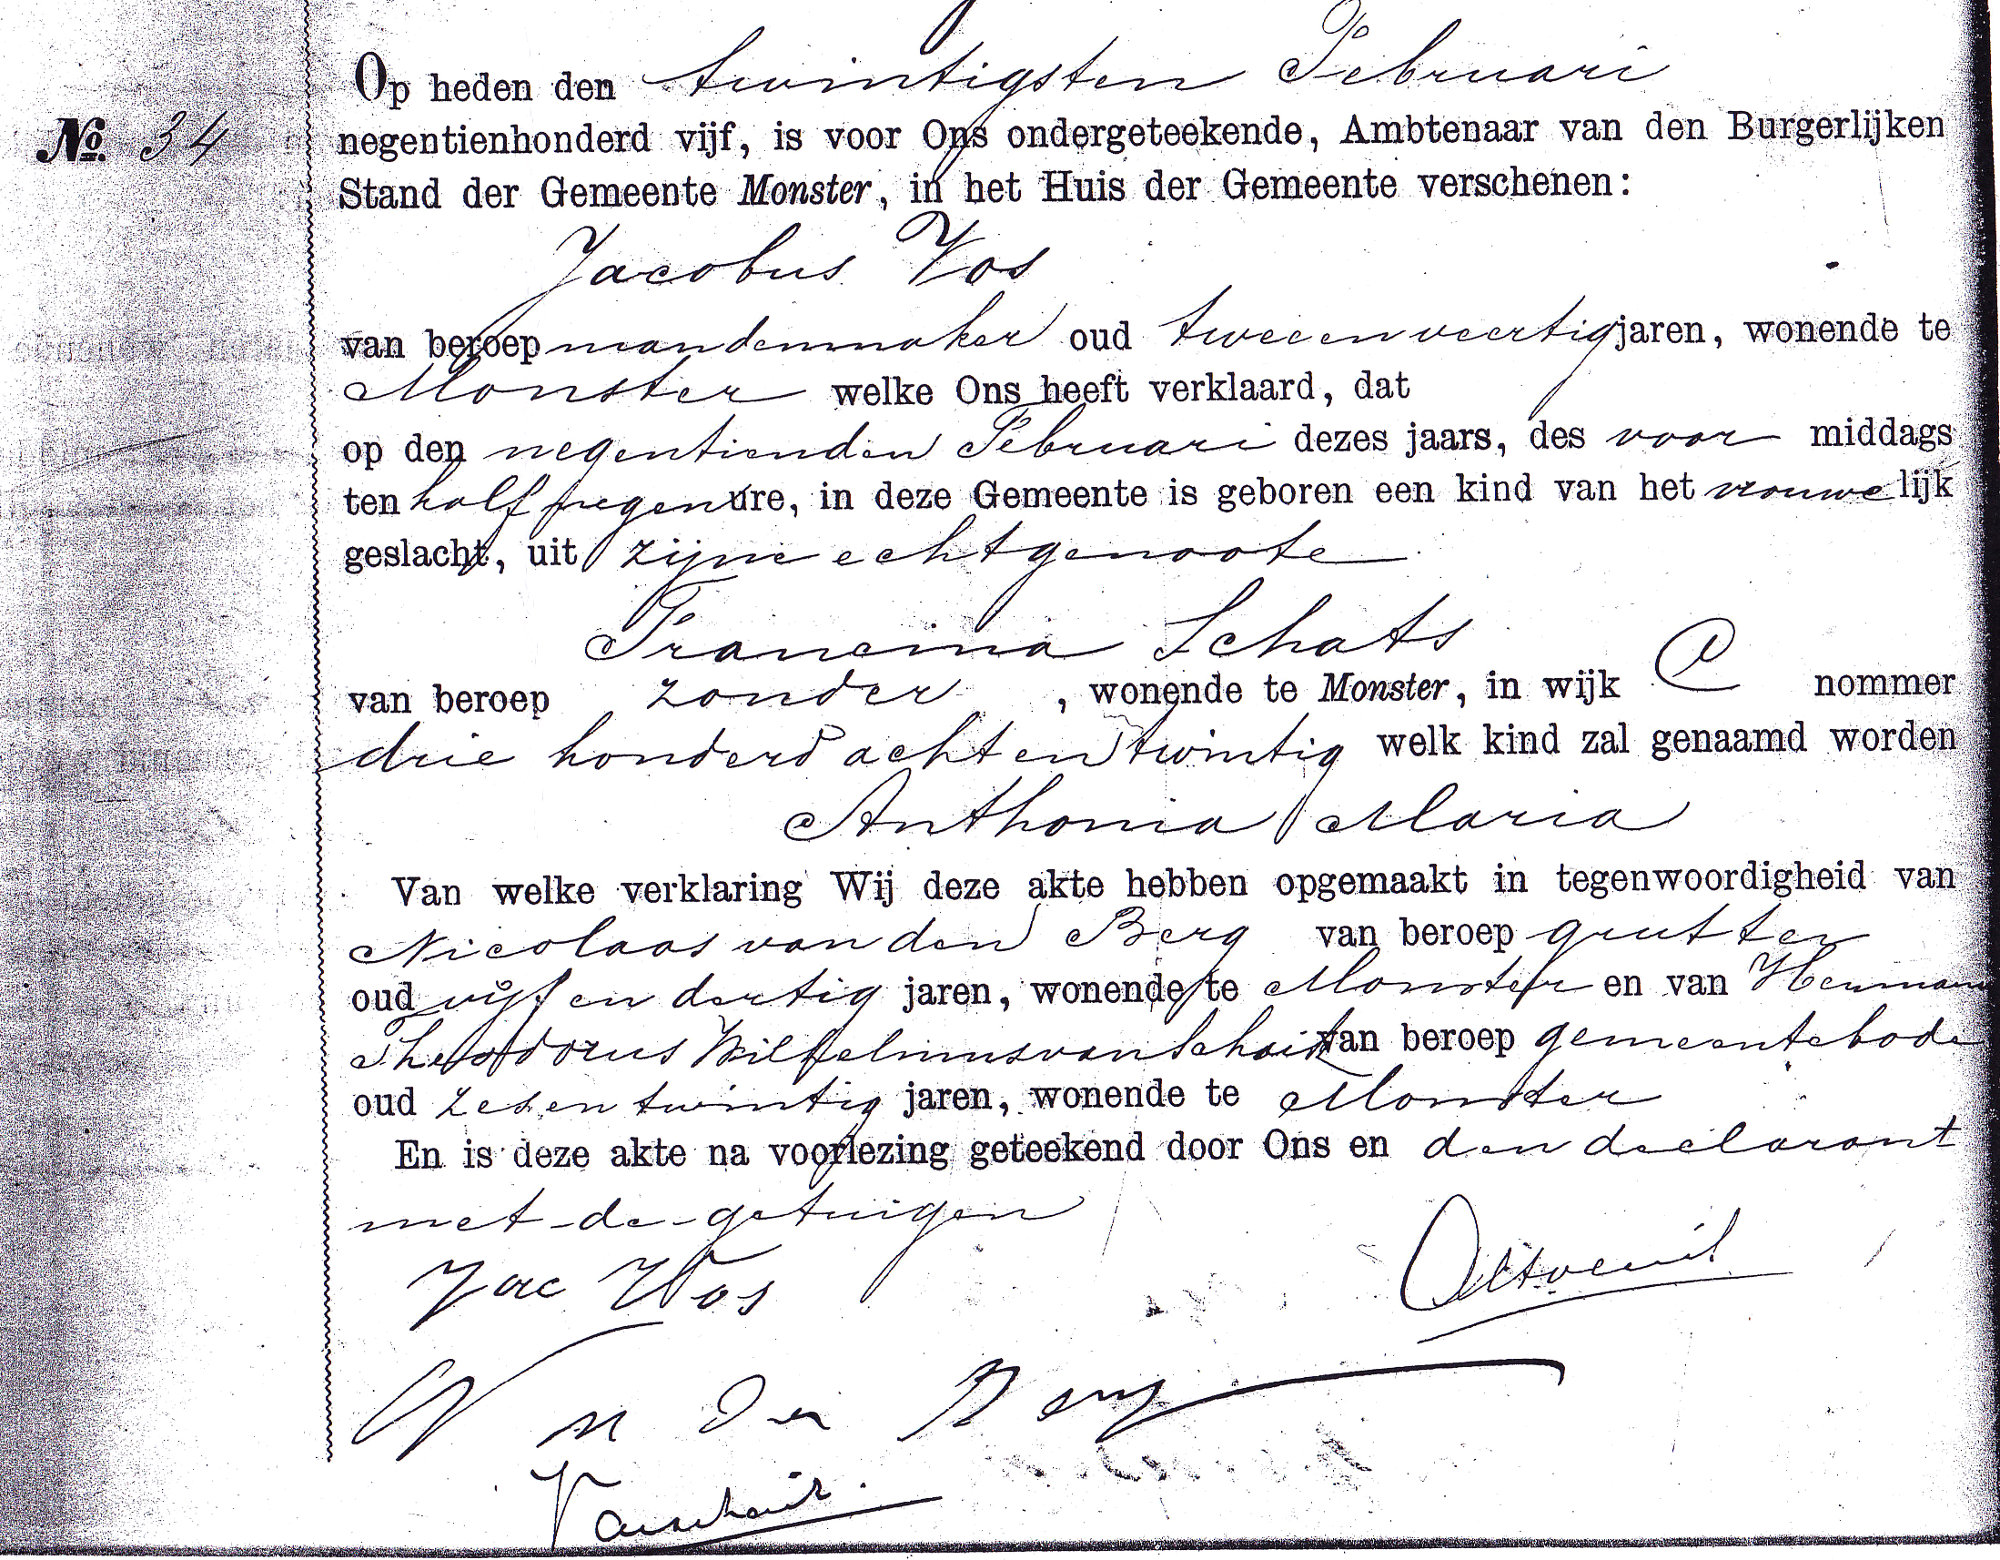 Op heden den twintigsten Februari
No. 34
negentienhonderd vijf, is voor Ons ondergeteekende, Ambtenaar van den Burgerlijken
Stand der Gemeente Monster, in het Huis der Gemeente verschenen:
Jacobus Vos
van beroep mandenmaker oud tweeenveertig jaren, wonende te
Monster welke Ons heeft verklaard, dat
op den negentienden Februari dezes jaars, des voor middags
ten half negen ure, in deze Gemeente is geboren een kind van het vrouwelijk
geslacht, uit zijne echtgenoote
Francina Schats
van beroep zonder, wonende te Monster, in wijk C nommer
drie honderd acht en twintig welk kind zal genaamd worden
Anthonia Maria
Van welke verklaring Wij deze akte hebben opgemaakt in tegenwoordigheid van
Nicolaas van den Berg van beroep grutter
oud vijf en dertig jaren, wonende te Monster en van Hermanus
Theodorus Wilhelmus van Schaik van beroep gemeentebode
oud zes en twintig jaren, wonende te Monster
En is deze akte na voorlezing geteekend door Ons en den declarant
met de getuigen
Jac Vos
N v d Berg